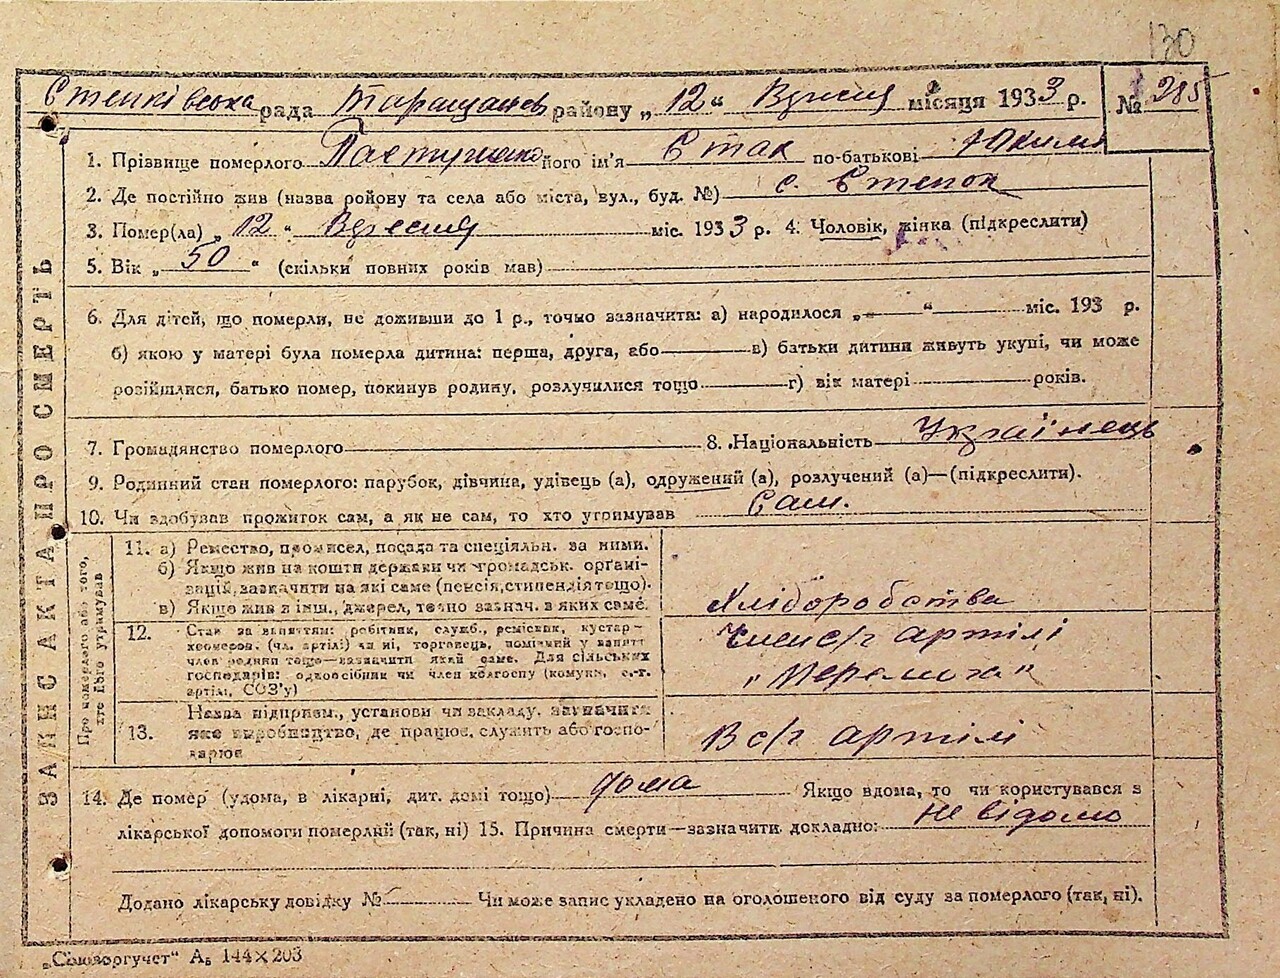 130
Степківська рада Таращансь району „12“ Вдесня місяця 1933 р. № 285
1. Прізвище померлого його ім'я Єтак по-батькові Юхим
2. Де постійно жив (назва ройону та села або міста, вул., буд. №) с. Степок
3. Помер(ла) „12“ Вдесня міс. 1933 р. 4. Чоловік, жінка (підкреслити)
5. Вік „50“ (скільки повних років мав)
6. Для дітей, що померли, не доживши до 1 р., точно зазначити: а) народилося „—“ міс. 193 р.
б) якою у матері була померла дитина: перша, друга, або — в) батьки дитини живуть укупі, чи може
розійшлися, батько помер, покинув родину, розлучилися тощо — г) вік матері — років.
7. Громадянство померлого — 8. Національність Українець
9. Родинний стан померлого: парубок, дівчина, удівець (а), одружений (а), розлучений (а)—(підкреслити).
10. Чи здобував прожиток сам, а як не сам, то хто утримував Сам.
ЗАПИС АКТА ПРО СМЕРТЬ
Про померлого або того, хто його утримував
11. а) Ремество, промисел, посада та спеціяльн. за ними.
б) Якщо жив на кошти держави чи громадськ. орґані-
зацій, зазначити на які саме (пенсія, стипендія тощо).
в) Якщо жив з інш., джерел, точно зазнач. з яких саме. Хліборобства
12. Стан за заняттям: робітник, служб., ремісник, кустар- Член с/г артілі
кооперов. (чл. артілі) чи ні, торговець, помічний у занятт
член родини тощо—зазначити який саме. Для сільських „Перемога“
господарів: одноосібник чи член колгоспу (комуни, с.-г.
артілі, СОЗ'у)
13. Назва підприєм., установи чи закладу, зазначити
яке виробництво, де працює, служить або госпо- В с/г артілі
дарює
14. Де помер (удома, в лікарні, дит. домі тощо) дома Якщо вдома, то чи користувався з
лікарської допомоги померлий (так, ні) 15. Причина смерти—зазначити докладно: Не відомо
Додано лікарську довідку № — Чи може запис укладено на оголошеного від суду за померлого (так, ні).
„Союзоргучет“ А₅ 144×203